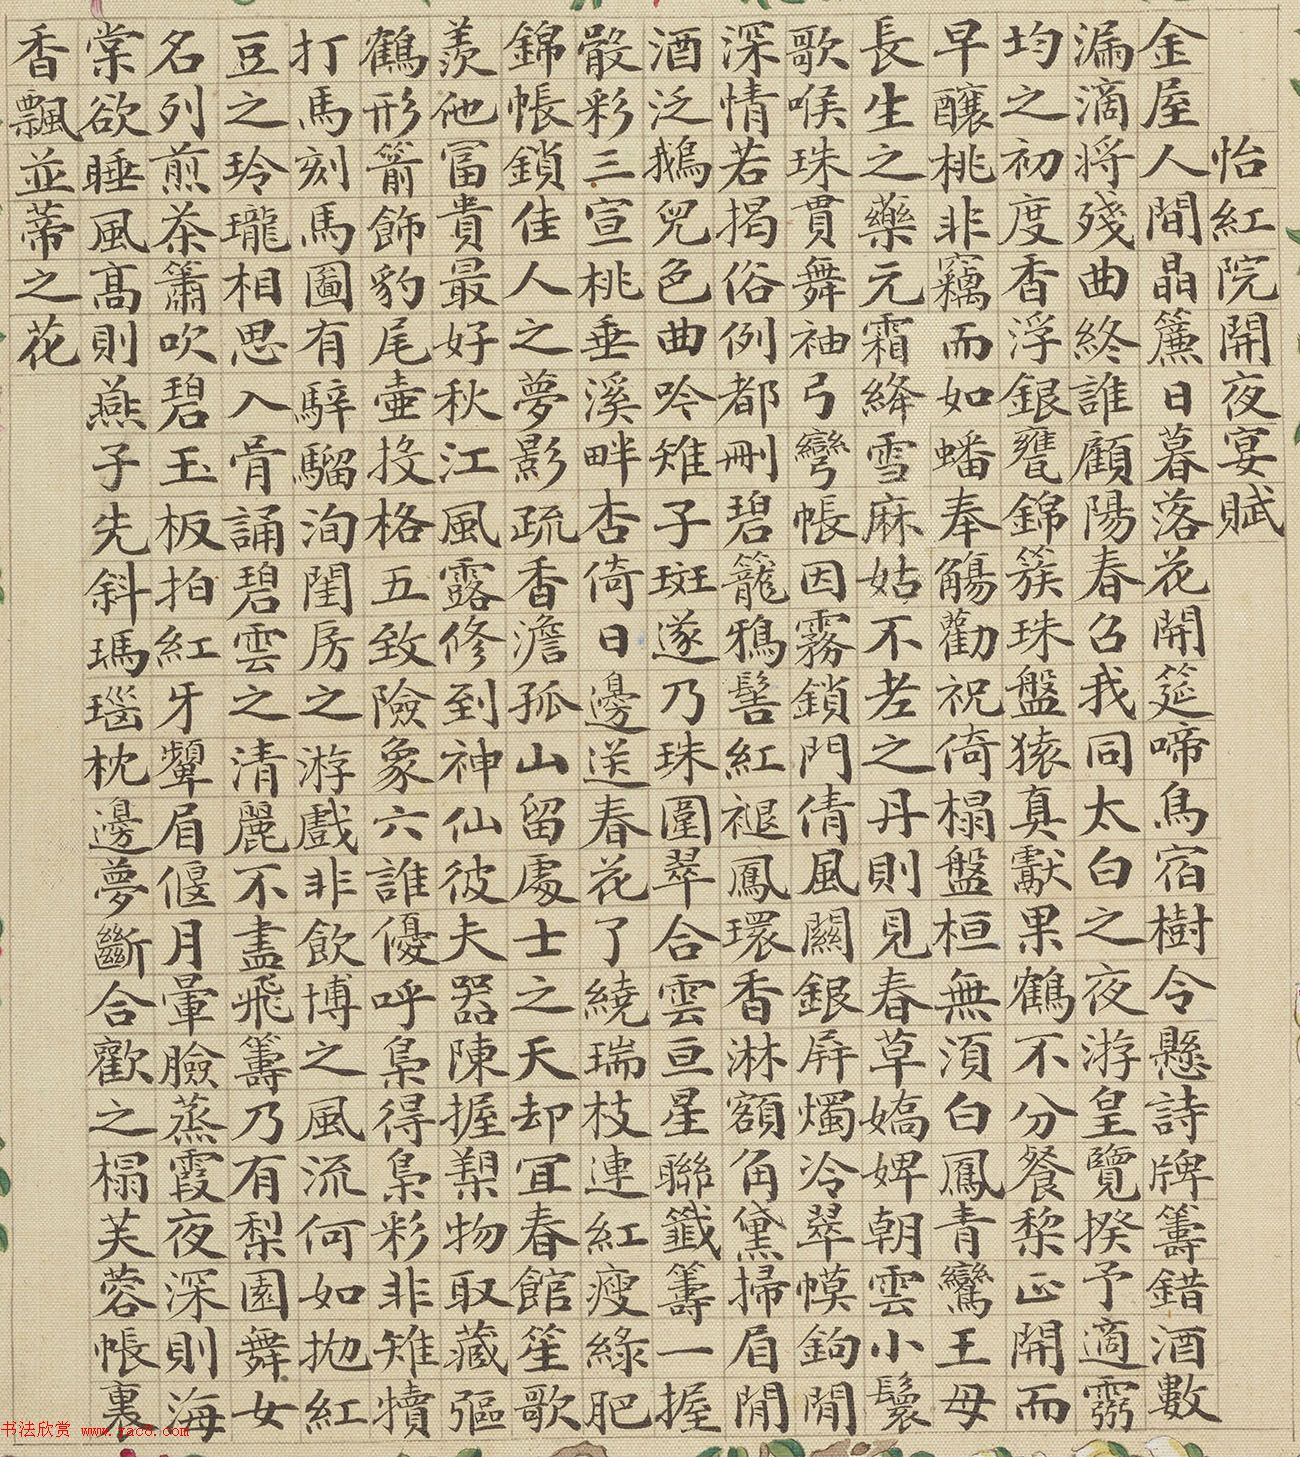 怡紅院開夜宴賦
金屋人間晶簾日暮落花開筵啼鳥宿樹令懸詩牌籌錯酒數
漏滴將殘曲終誰顧陽春召我同太白之夜游皇覽揆予適窮
均之初度香浮銀甕錦簇珠盤猿真獻果鶴不分餐黎正開而
早釀桃非竊而如蟠奉觴勸祝倚榻盤桓無須白鳳青鸞王母
長生之藥元霜絳雪麻姑不老之丹則見春草嬌婢朝雲小鬟
歌喉珠貫舞袖弓彎帳因霧鎖門倩風關銀屏燭冷翠幙鉤閒
深情若揭俗例都刪碧籠鴉髻紅褪鳳環香淋額角黛掃眉間
酒泛鵝兒色曲吟雉子斑遂乃珠圍翠合雲亘星聯籤籌一握
骰彩三宣桃垂溪畔杏倚日邊送春花了繞瑞枝連紅瘦綠肥
錦帳鎖佳人之夢影疏香澹孤山留處士之天却宜春館笙歌
羨他冨貴最好秋江風露修到神仙彼夫器陳握槊物取藏彄
鶴形箭飾豹尾壺投格五致險象六誰優呼梟得梟彩非雉犢
打馬刻馬圖有騂騮洵閨房之游戲非飲博之風流何如拋紅
豆之玲瓏相思入骨誦碧雲之清麗不盡飛籌乃有梨園舞女
名列煎茶簫吹碧玉板拍紅牙顰眉偃月暈臉蒸霞夜深則海
棠欲睡風高則燕子先斜瑪瑙枕邊夢斷合歡之榻芙蓉帳裏
香飄並蒂之花
书法欣赏 www.yac8.com